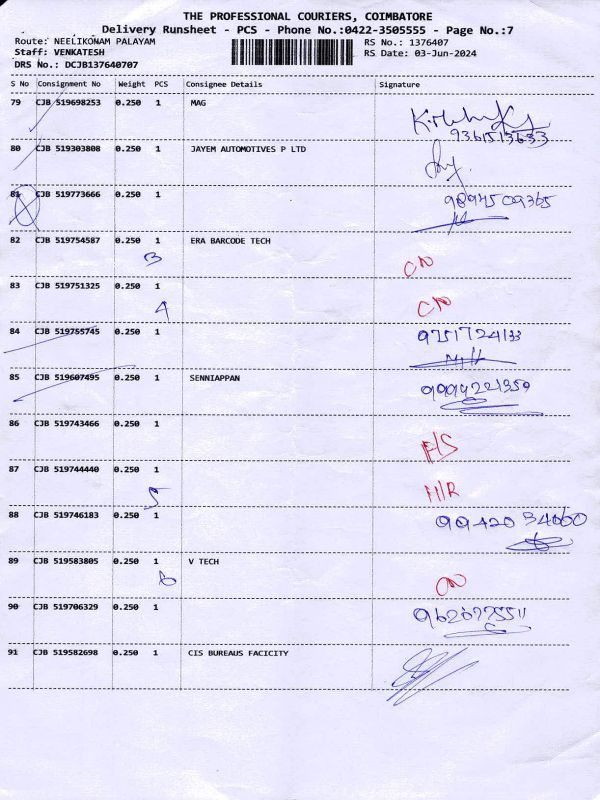 THE PROFESSIONAL COURIERS, COIMBATORE
Delivery Runsheet - PCS - Phone No.:0422-3505555 - Page No.:7
Route: NEELIKONAM PALAYAM RS No.: 1376407
Staff: VENKATESH RS Date: 03-Jun-2024
DRS No.: DCJB137640707
S No Consignment No Weight PCS Consignee Details Signature
79 CJB 519698253 0.250 1 MAG
9361513633
80 CJB 519303808 0.250 1 JAYEM AUTOMOTIVES P LTD
81 CJB 519773666 0.250 1 9894509365
82 CJB 519754587 0.250 1 ERA BARCODE TECH
3 CN
83 CJB 519751325 0.250 1
4 CN
84 CJB 519755745 0.250 1 9751724133
85 CJB 519607495 0.250 1 SENNIAPPAN 9994221359
86 CJB 519743466 0.250 1
H/S
87 CJB 519744440 0.250 1
5 H/R
88 CJB 519746183 0.250 1 9942034060
89 CJB 519583805 0.250 1 V TECH
6 CN
90 CJB 519706329 0.250 1 9626775511
91 CJB 519582698 0.250 1 CIS BUREAUS FACICITY